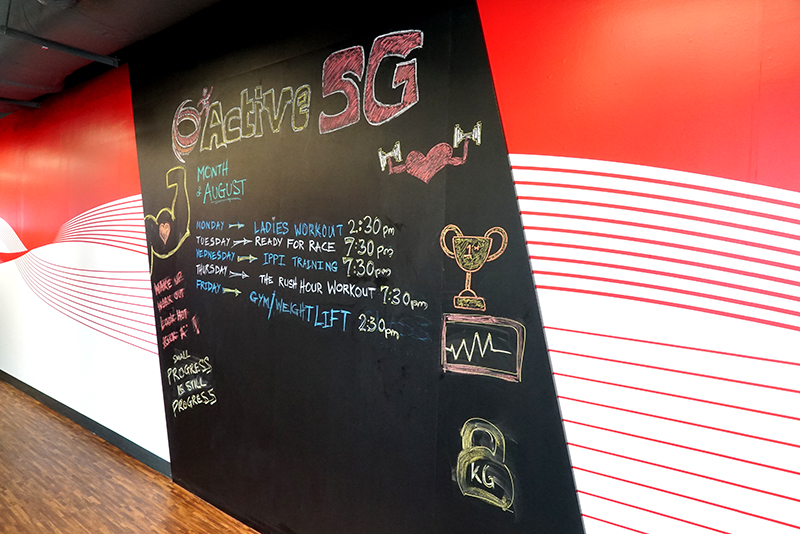 Active SG
MONTH
of AUGUST
MONDAY → LADIES WORKOUT 2:30pm
TUESDAY → READY FOR RACE 7:30pm
WEDNESDAY → IPPI TRAINING 7:30pm
THURSDAY → THE RUSH HOUR WORKOUT 7:30pm
FRIDAY → GYM/WEIGHTLIFT 2:30pm
MAKE ME
WORK OUT
LOOK HOT
SMALL
PROGRESS
IS STILL
PROGRESS
1st
KG